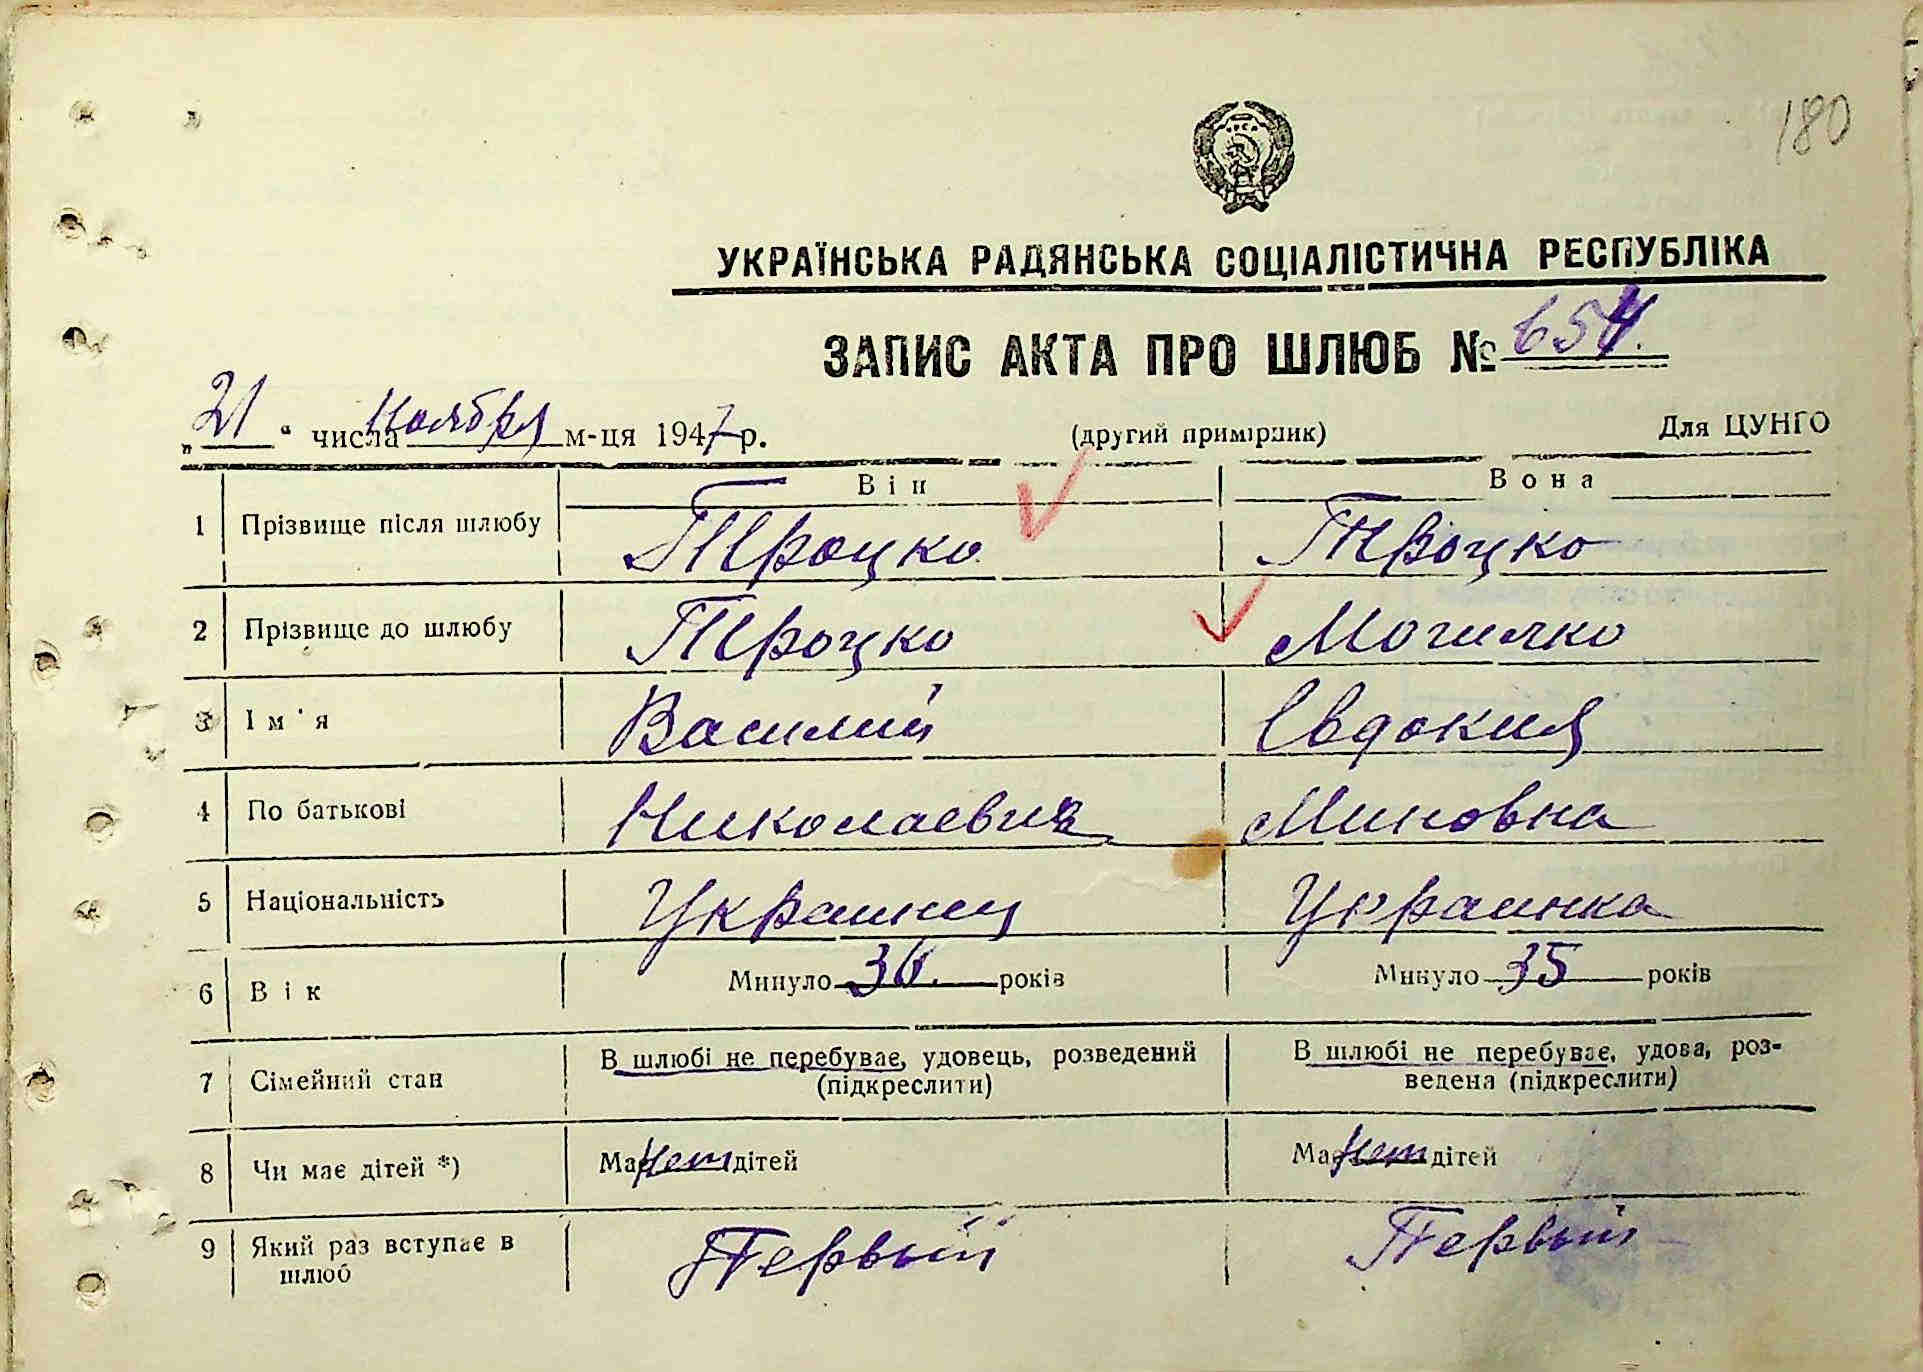 180
УКРАЇНСЬКА РАДЯНСЬКА СОЦІАЛІСТИЧНА РЕСПУБЛІКА
ЗАПИС АКТА ПРО ШЛЮБ № 654.
„21" числа Ноября м-ця 1947 р. (другий примірник) Для ЦУНГО
Він Вона
1 Прізвище після шлюбу Троцко Троцко
2 Прізвище до шлюбу Троцко Могилко
3 Ім'я Василий Евдокия
4 По батькові Николаевич Миновна
5 Національність Украинец Украинка
6 Вік Минуло 36. років Минуло 35 років
7 Сімейний стан В шлюбі не перебуває, удовець, розведений (підкреслити) В шлюбі не перебуває, удова, роз-
ведена (підкреслити)
8 Чи має дітей *) Має нет дітей Має нет дітей
9 Який раз вступає в шлюб Первый Первый